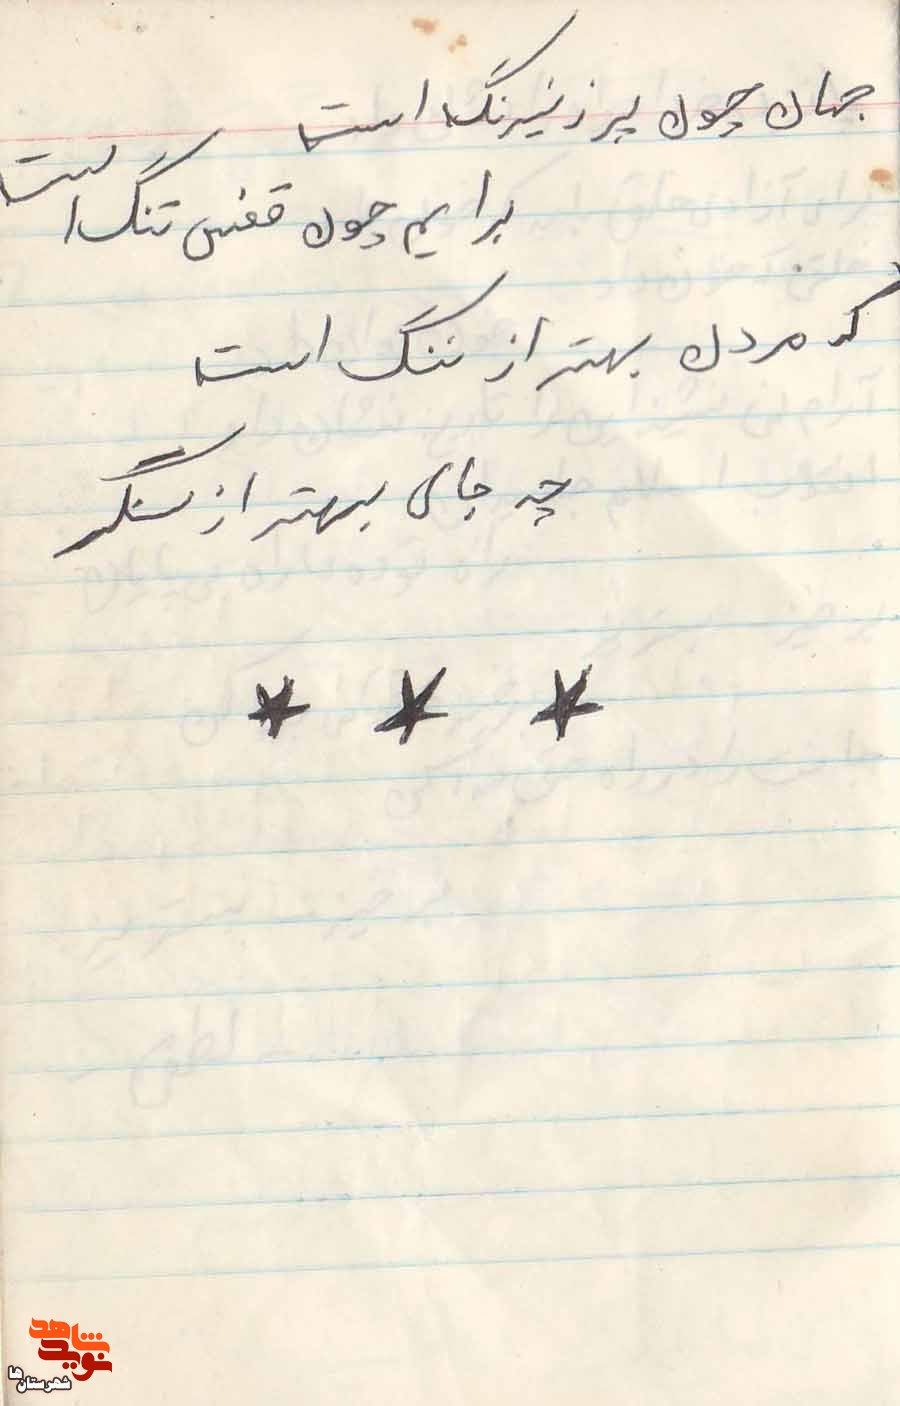 جهان چون پر ز نیرنگ است
برایم چون قفس تنگ است
که مردن بهتر از ننگ است
چه جای بهتر از سنگر
* * *
شاهد
نوید
شهرستان‌ها